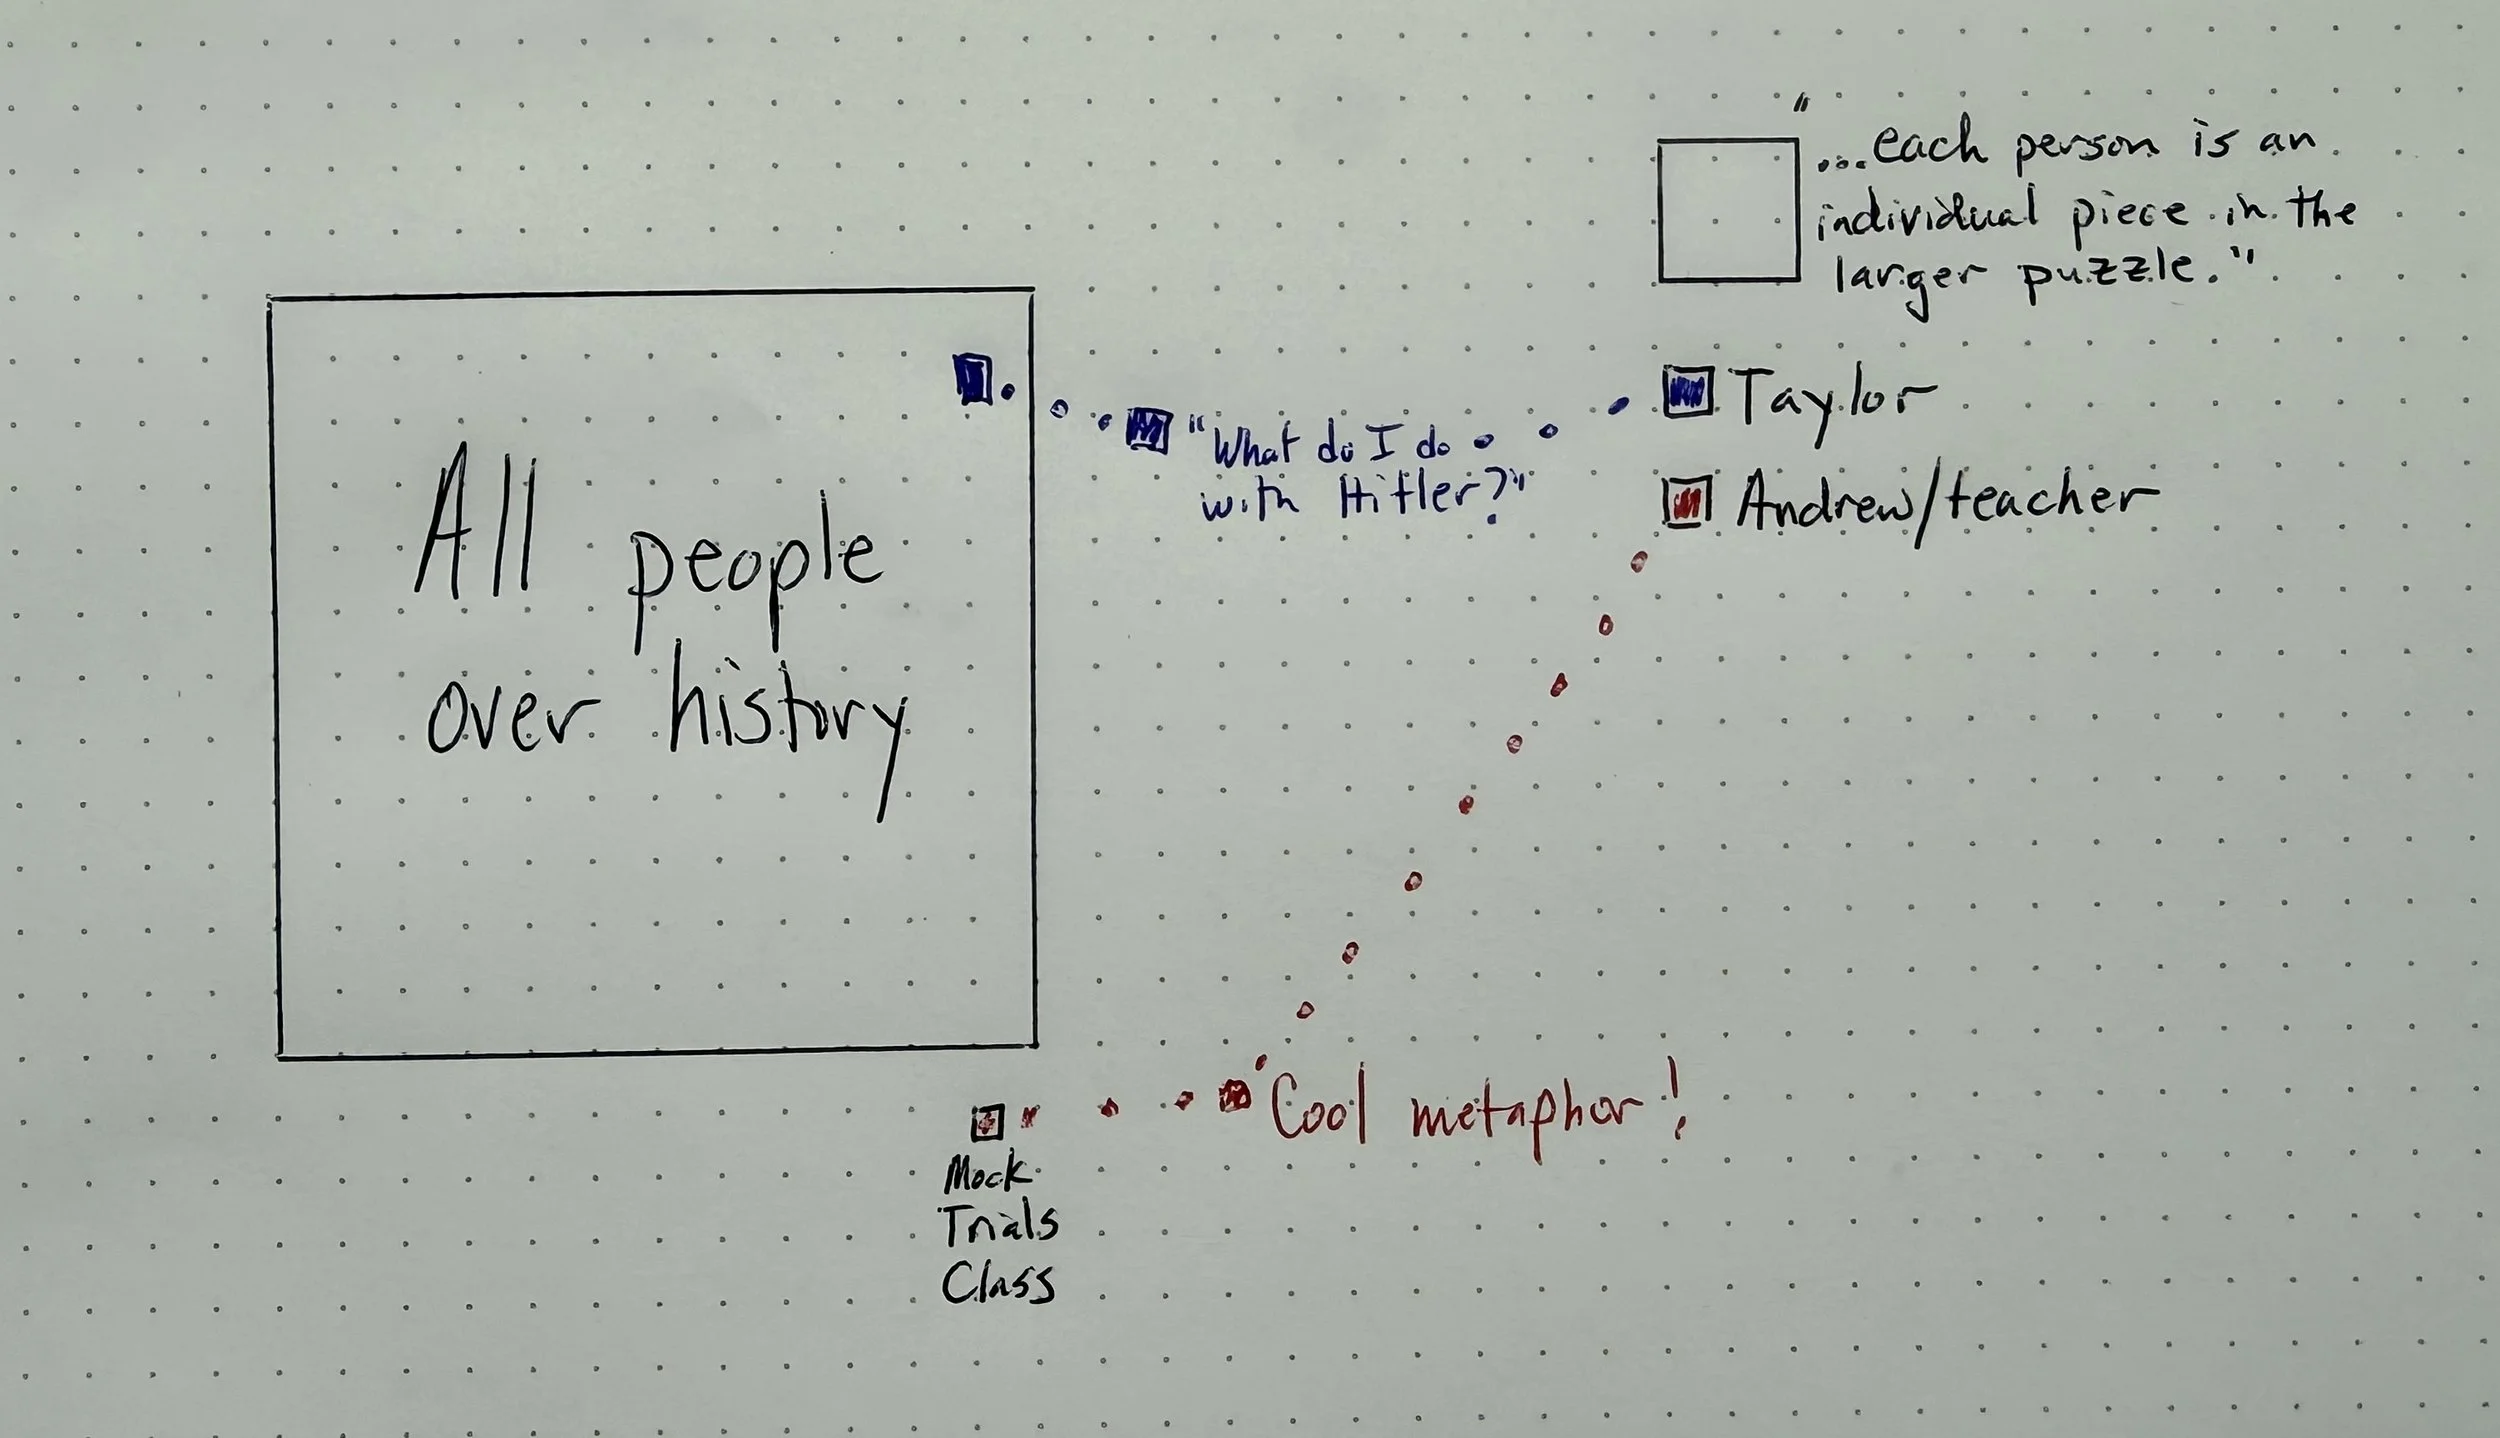 "...each person is an
individual piece in the
larger puzzle."
Taylor
"What do I do
with Hitler?"
Andrew/teacher
All people
over history
Cool metaphor!
Mock
Trials
Class